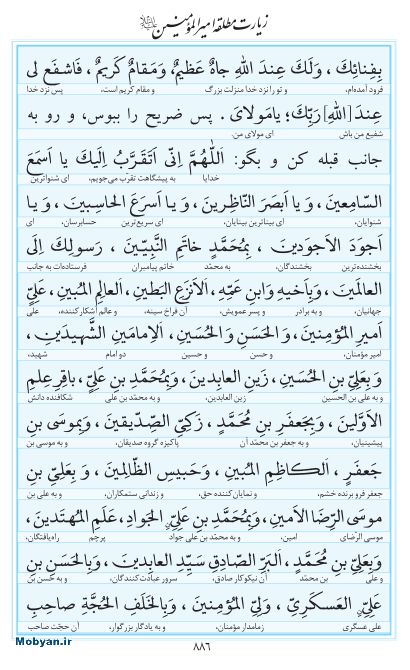 زیارت مطلقه امیرالمؤمنین علیه‌السلام
بِفِنائِكَ ، وَلَكَ عِندَ اللهِ جاهٌ عَظيمٌ، وَمَقامٌ كَريمٌ ، فَاشفَع لي
فرود آمده‌ام، و تو را نزد خدا منزلت بزرگ و مقام کریم است، پس نزد خدا
عِندَ [اللهِ] رَبِّكَ؛ يامَولايَ. پس ضریح را ببوس، و رو به
شفیع من باش ای مولای من.
جانب قبله کن و بگو: اَللّٰهُمَّ اِنّى اَتَقَرَّبُ اِلَيكَ يا اَسمَعَ
خدایا به پیشگاهت تقرب می‌جویم، ای شنواترین
السّامِعينَ، وَ يا اَبصَرَ النّاظِرينَ، وَ يا اَسرَعَ الحاسِبينَ، وَ يا
شنوایان، ای بیناترین بینایان، ای سریع‌ترین حسابرسان، ای
اَجوَدَ الاَجوَدينَ ، بِمُحَمَّدٍ خاتَمِ النَّبِيّينَ ، رَسولِكَ اِلَى
بخشنده‌ترین بخشندگان، به محمّد خاتم پیامبران فرستاده‌ات به جانب
العالَمينَ، وَبِاَخيهِ وَابنِ عَمِّهِ، اَلاَنزَعِ البَطينِ، اَلعالِمِ المُبينِ، عَلِيٍّ
جهانیان، و به برادر و پسر عمویش، آن فراخ سینه، و عالم آشکار کننده، علی
اَميرِ المُؤمِنينَ، وَالحَسَنِ وَالحُسَينِ، اَلاِمامَينِ الشَّهيدَينِ،
امیر مؤمنان، و حسن و حسین دو امام شهید،
وَ بِعَلِيِّ بنِ الحُسَينِ، زَينِ العابِدينَ، وَبِمُحَمَّدِ بنِ عَلِيٍّ، باقِرِ عِلمِ
و به علی بن الحسین زین العابدین، و به محمّد بن علی شکافنده دانش
الاَوَّلينَ، وَبِجَعفَرِ بنِ مُحَمَّدٍ، زَكِيِّ الصِّدّيقينَ، وَبِموسَى بنِ
پیشینیان، و به جعفر بن محمّد آن پاکیزه گروه صدیقان، و به موسی بن
جَعفَرٍ ، اَلكاظِمِ المُبينِ، وَحَبيسِ الظّالِمينَ ، وَ بِعَلِيِّ بنِ
جعفر فرو برنده خشم، و نمایان کننده حق، و زندانی ستمکاران، و به علی بن
موسَى الرِّضَا الاَمينِ، وَبِمُحَمَّدِ بنِ عَلِيٍّ الجَوادِ، عَلَمِ المُهتَدينَ،
موسی الرّضای امین، و به محمّد بن علی جواد پرچم راه‌یافتگان،
وَبِعَلِيِّ بنِ مُحَمَّدٍ، اَلبَرِّ الصّادِقِ سَيِّدِ العابِدينَ، وَبِالحَسَنِ بنِ
و علی بن محمّد آن نیکوکار صادق، سرور عبادت کنندگان، و به حسن بن
عَلِيٍّ العَسكَرِيِّ ، وَلِيِّ المُؤمِنينَ ، وَبِالخَلَفِ الحُجَّةِ صاحِبِ
علی عسکری زمامدار مؤمنان، و به یادگار بزرگوار، آن حجّت صاحب
Mobyan.ir
۸۸۶